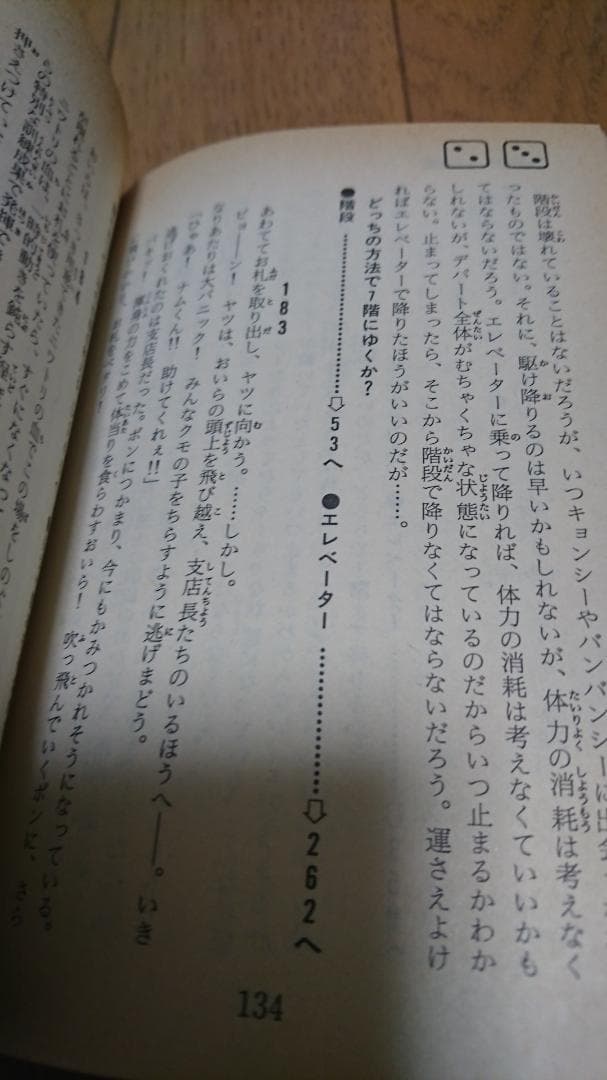 階段は壊れていることはないだろうが、いつキョンシーやバンバンシーに出会
ったものではない。それに、駆け降りるのは早いかもしれないが、体力の消耗は考えなく
てはならないだろう。エレベーターに乗って降りれば、体力の消耗は考えなくていいかも
しれないが、デパート全体がむちゃくちゃな状態になっているのだからいつ止まるかわか
らない。止まってしまったら、そこから階段で降りなくてはならないだろう。運さえよけ
ればエレベーターで降りたほうがいいのだが……。
どっちの方法で7階にゆくか?
●階段…………⇨53へ ●エレベーター…………⇨262へ
183
あわててお札を取り出し、ヤツに向かう。……しかし。
ピョーン! ヤツは、おいらの頭上を飛び越え、支店長たちのいるほうへ——。いき
なりあたりは大パニック! みんなクモの子をちらすように逃げまどう。
「ひゃあ! ナムくん!! 助けてくれぇ!!」
逃げおくれたのは支店長だった。ポンにつかまり、今にもかみつかれそうになっている。
渾身の力をこめて体当りを食らわすおいら! 吹っ飛んでいくポンに、さら
134